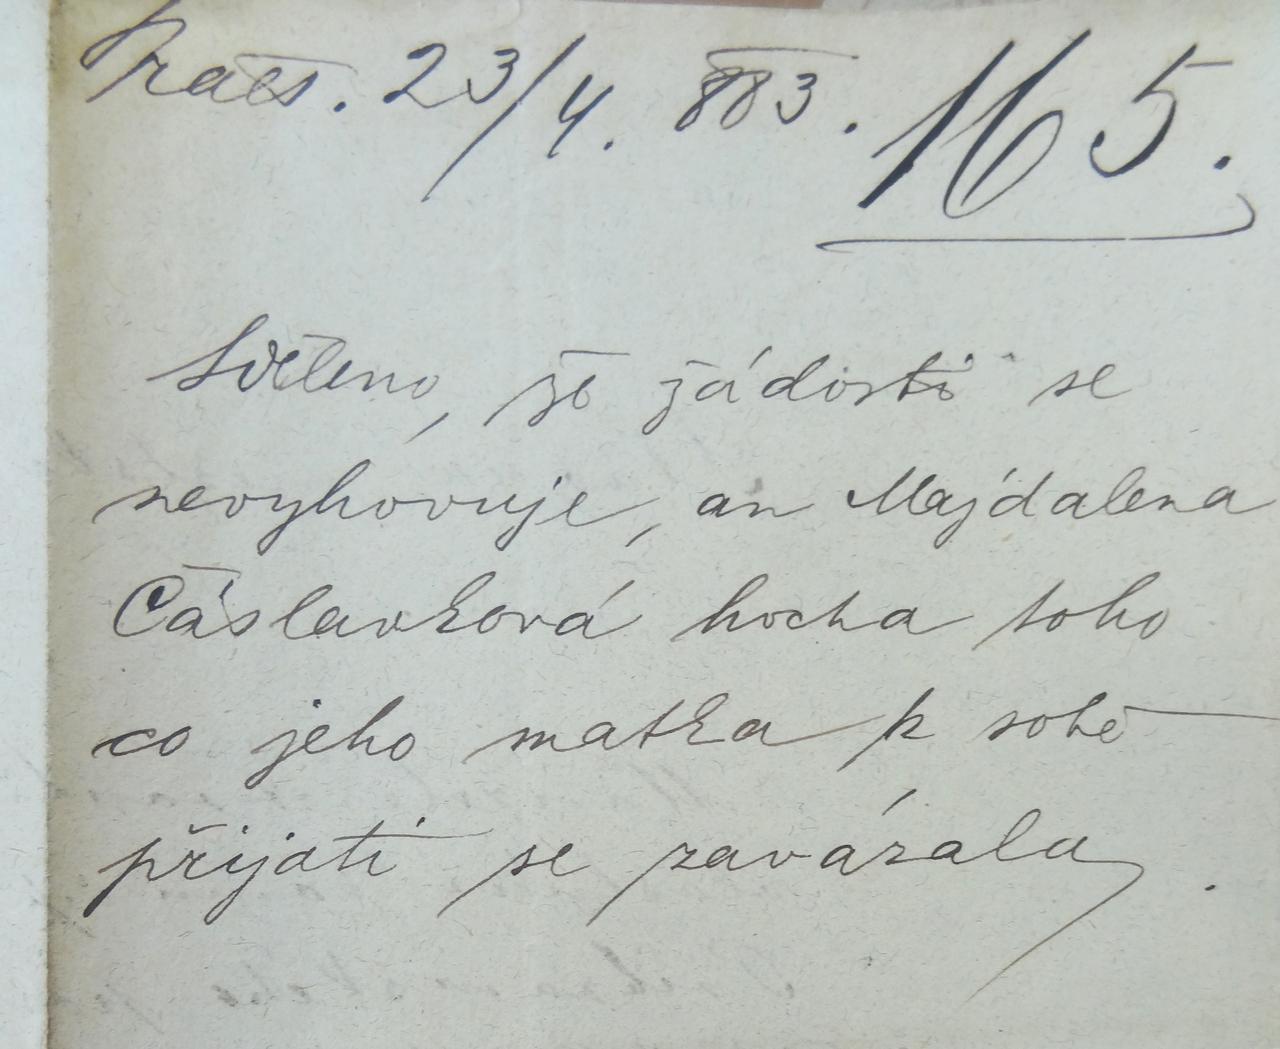 Praes. 23/4. 883. 165.
Sděleno, že žádosti se
nevyhovuje, an Majdalena
Čáslavková hocha toho
co jeho matka k sobě
přijati se zavázala.